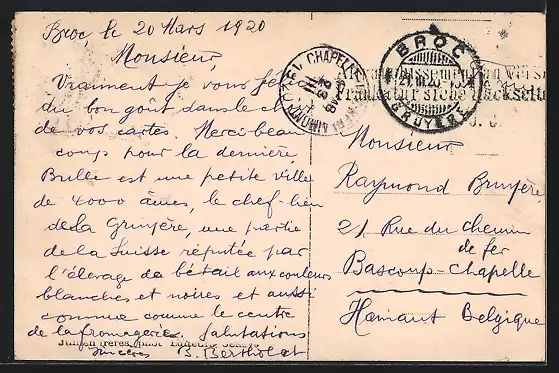 Broc, le 20 Mars 1920
Monsieur,
Vraiment je vous
du bon goût dans le
de vos cartes. Merci beau
coup pour la dernière
Bulle est une petite ville
de 4000 âmes, le chef-lieu
de la Gruyère, une partie
de la Suisse réputée par
l'élevage de bétail aux couleurs
blanches et noires et aussi
connue comme le centre
de la fromagerie. Salutations
sincères S. Berthelot
Jullien frères, phot. Editeurs, Genève
CHAPELLE
BROC
GRUYÈRE
Affranchissement au verso
Frankatur siehe Rückseite
Monsieur
Raymond Bruyère
21 Rue du chemin
de fer
Bascoup-Chapelle
Hainaut Belgique